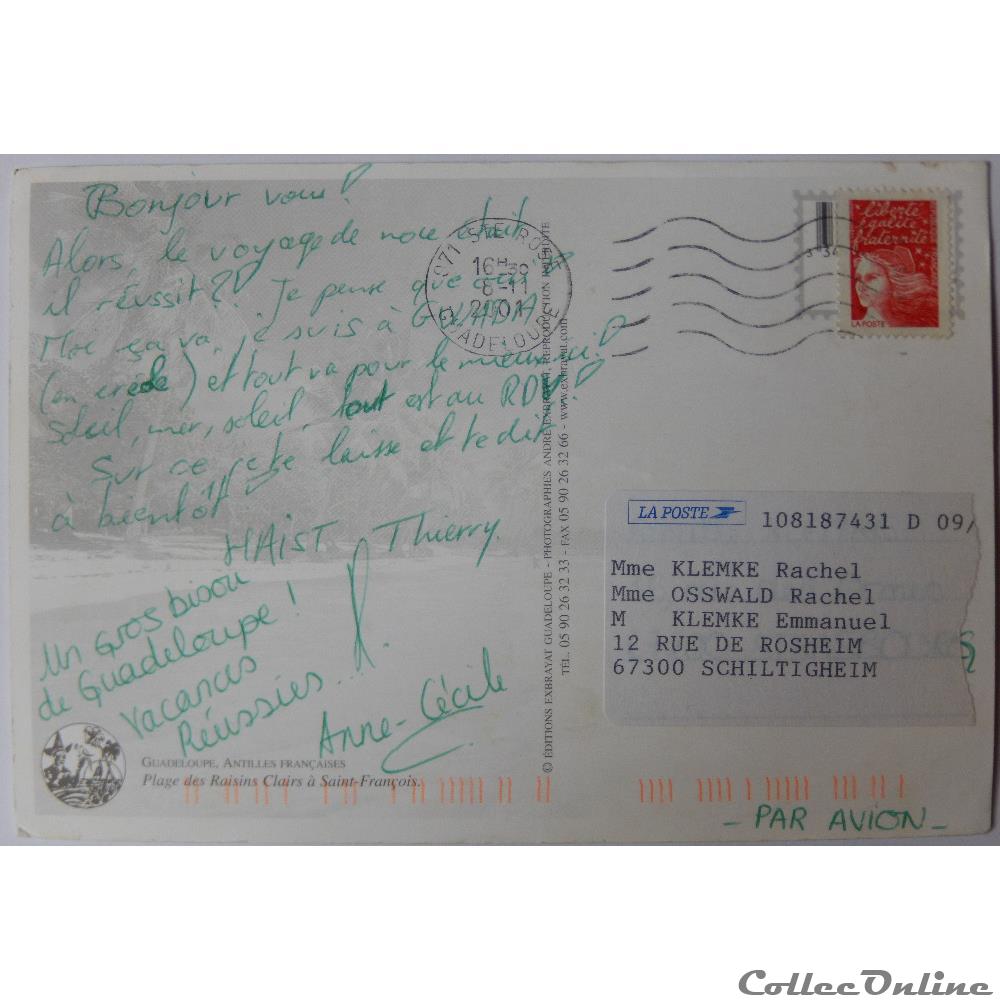 Bonjour vous!
Alors, le voyage de noce était
il réussit?! Je pense que oui!
Moi ça va, je suis à GWADA
(en créole) et tout va pour le mieux ici!
soleil, mer, soleil, tout est au RDV!
Sur ce je te laisse et te dit
à bientôt!
HAIST Thierry
Un Gros bisou
de Guadeloupe!
Vacances
Réussies...
Anne-Cécile
GUADELOUPE, ANTILLES FRANÇAISES
Plage des Raisins Clairs à Saint-François.
© ÉDITIONS EXBRAYAT GUADELOUPE - PHOTOGRAPHIES ANDRÉ EXBRAYAT, REPRODUCTION INTERDITE
TÉL. 05 90 26 32 33 - FAX 05 90 26 32 66 - www.exbrayat.com
971 STE ROSE
16H30
6-11
2001
GUADELOUPE
liberté
égalité
fraternité
LA POSTE
LA POSTE 108187431 D 09/
Mme KLEMKE Rachel
Mme OSSWALD Rachel
M KLEMKE Emmanuel
12 RUE DE ROSHEIM
67300 SCHILTIGHEIM
- PAR AVION -
CollecOnline